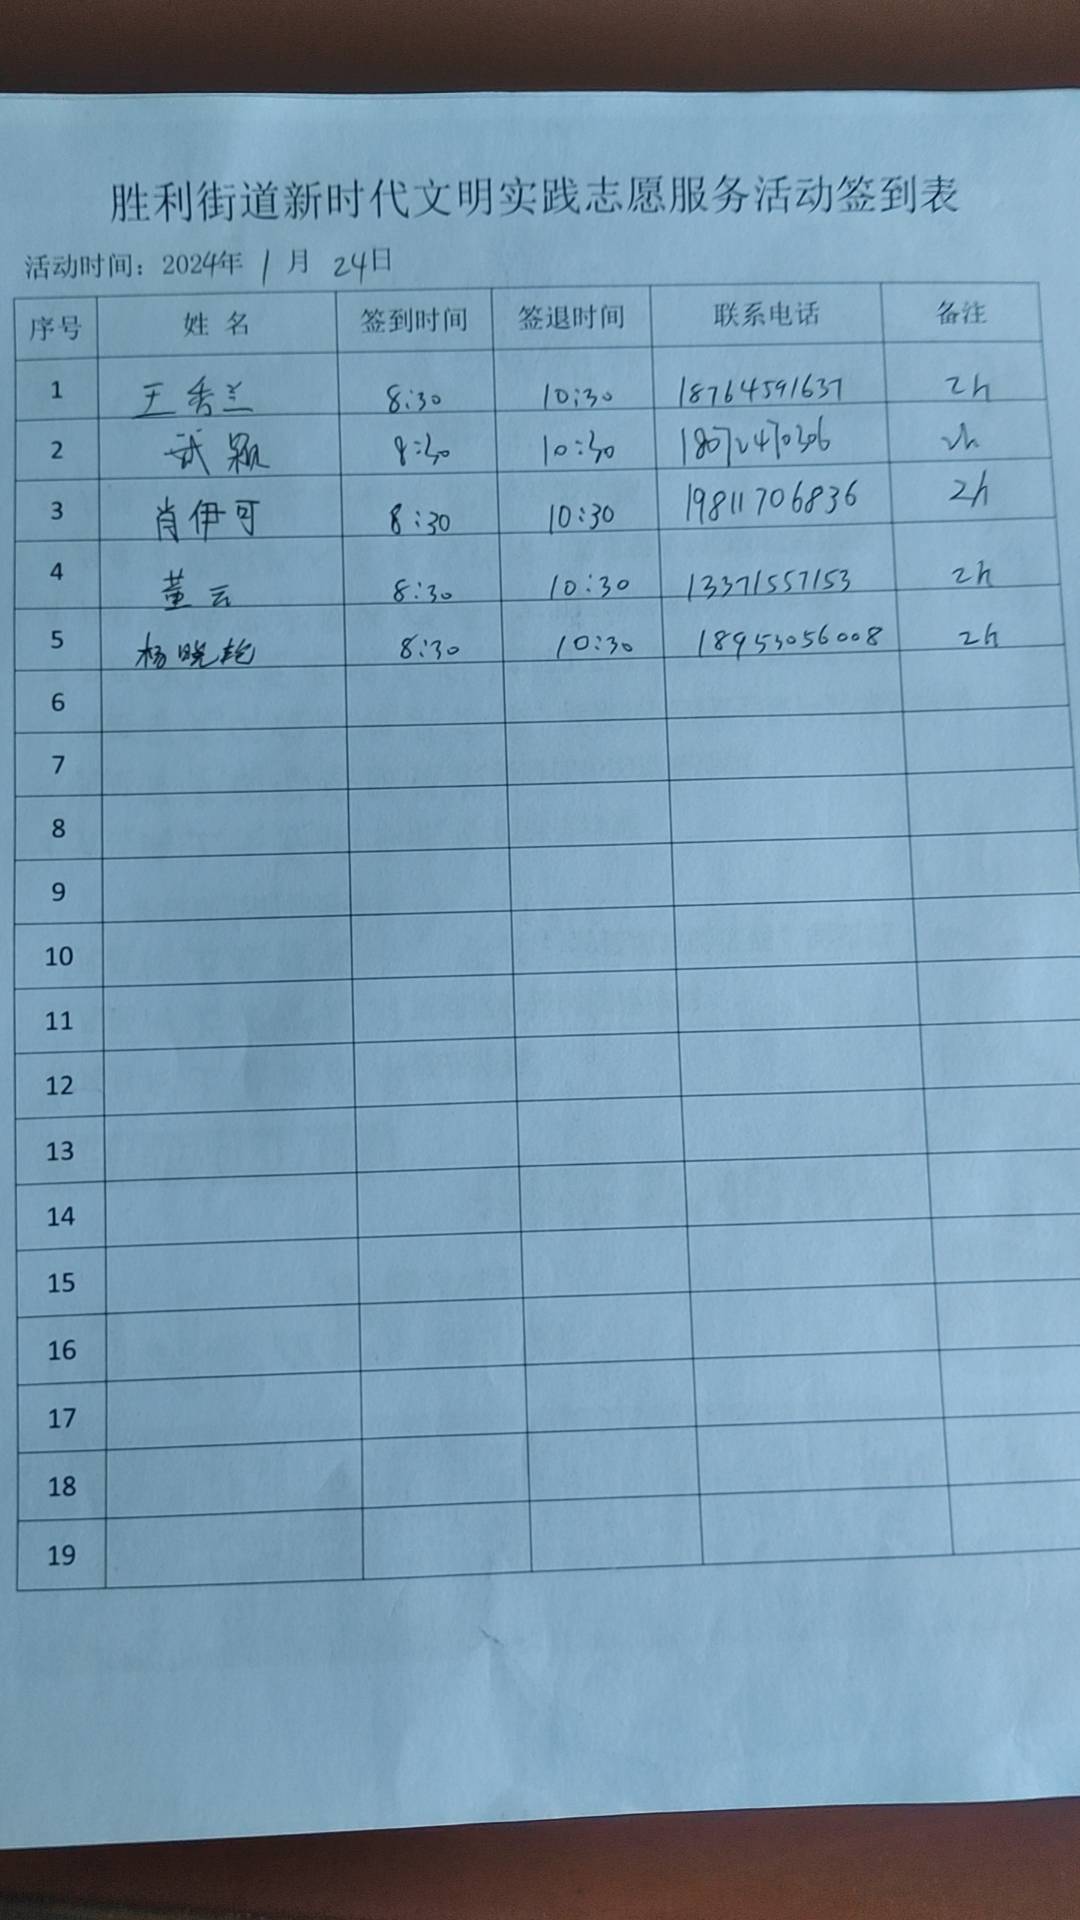 胜利街道新时代文明实践志愿服务活动签到表
活动时间：2024年 1 月 24日
序号 姓 名 签到时间 签退时间 联系电话 备注
1 王秀兰 8:30 10:30 18764591637 2h
2 武颖 8:30 10:30 2h
3 肖伊可 8:30 10:30 19811706836 2h
4 董云 8:30 10:30 13371557153 2h
5 杨晓艳 8:30 10:30 18953056008 2h
6
7
8
9
10
11
12
13
14
15
16
17
18
19